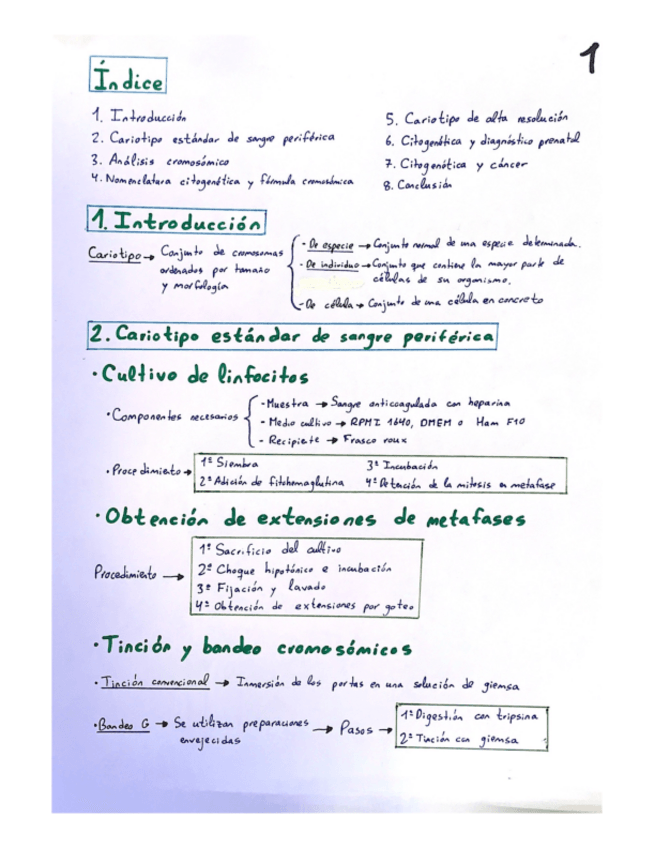 1
Índice
1. Introducción
2. Cariotipo estándar de sangre periférica
3. Análisis cromosómico
4. Nomenclatura citogenética y fórmula cromosómica
5. Cariotipo de alta resolución
6. Citogenética y diagnóstico prenatal
7. Citogenética y cáncer
8. Conclusión
1. Introducción
Cariotipo → Conjunto de cromosomas
ordenados por tamaño
y morfología
- De especie → Conjunto normal de una especie determinada.
- De individuo → Conjunto que contiene la mayor parte de
células de su organismo.
- De célula → Conjunto de una célula en concreto
2. Cariotipo estándar de sangre periférica
· Cultivo de linfocitos
· Componentes necesarios
- Muestra → Sangre anticoagulada con heparina
- Medio cultivo → RPMI 1640, DMEM o Ham F10
- Recipiente → Frasco roux
· Procedimiento →
1º Siembra
2º Adición de fitohemaglutina
3º Incubación
4º Detención de la mitosis en metafase
· Obtención de extensiones de metafases
Procedimiento →
1º Sacrificio del cultivo
2º Choque hipotónico e incubación
3º Fijación y lavado
4º Obtención de extensiones por goteo
· Tinción y bandeo cromosómicos
· Tinción convencional → Inmersión de los portas en una solución de giemsa
· Bandeo G → Se utilizan preparaciones
envejecidas
→ Pasos →
1º Digestión con tripsina
2º Tinción con giemsa